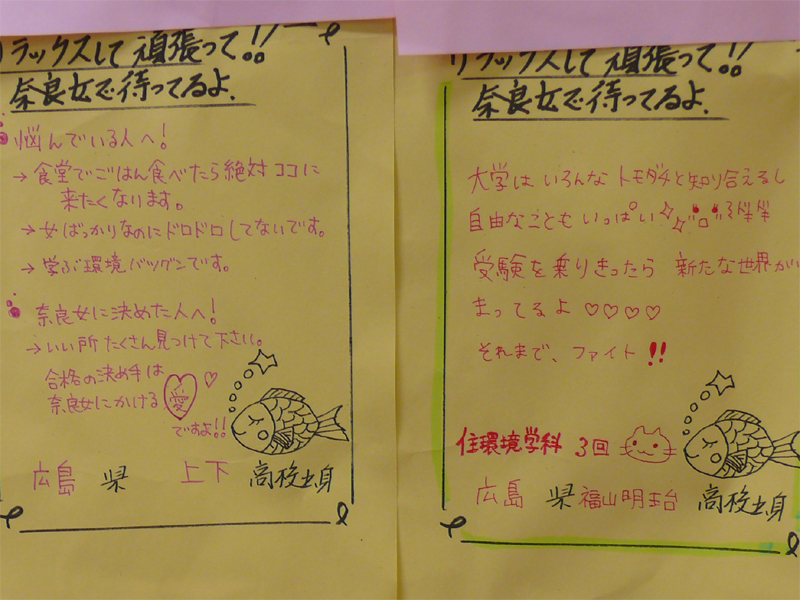 リラックスして頑張って!!
奈良女で待ってるよ.
悩んでいる人へ!
→食堂でごはん食べたら絶対ココに
来たくなります。
→女ばっかりなのにドロドロしてないです。
→学ぶ環境バツグンです。
奈良女に決めた人へ!
→いい所たくさん見つけて下さい。
合格の決め手は
奈良女にかける愛♡
ですよ!!
広島 県 上下 高校出身
リラックスして頑張って!!
奈良女で待ってるよ.
大学は いろんな トモダチと知り合えるし
自由なことも いっぱい
受験を乗りきったら 新たな世界が
まってるよ ♡♡♡♡
それまで、ファイト!!
住環境学科 3回
広島 県 福山明王台 高校出身